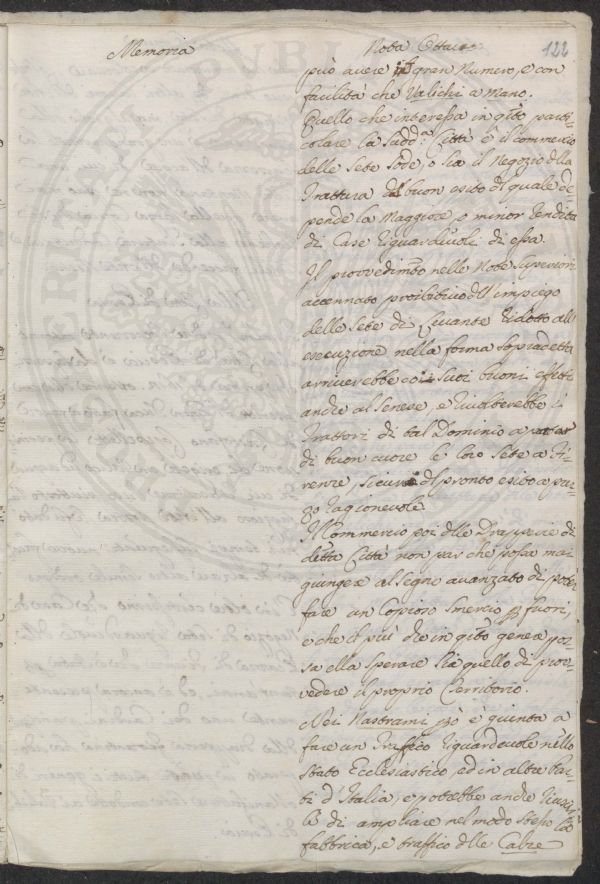 Memoria
Nota Ottava
122
può avere in gran Numero, e con
facilità che Valichi a mano.
Quello che interessa in q̃to parti-
colare la sudd.ª Città è il commercio
delle Sete Sode, o sia il Negozio d̃lla
Trattura dal buon esito di quale de
pende la Maggiore, o minor rendita
di Case riguardevoli di essa.
Il provvedimto nelle Note Superiori
accennato proibitivo dell'impiego
delle Sete di Levante ridotto all'
esecuzione nella forma sopradetta
arriverebbe coi suoi buoni effetti
anche al Senese, e rivolterebbe i
Trattori di tal Dominio a
di buon cuore le loro Sete a Fi-
renze, sicuri d̃l pronto esito a prez-
zo ragionevole.
Il Commercio poi d̃lle Drapperie di
detta Città non par che possa mai
giungere al segno avanzato di poter
fare un copioso smercio p̃ fuori,
e che il più che in q̃to genere pos-
sa ella sperare sia quello di prov-
vedere il proprio Territorio.
Nei Nastrami p̃ò è giunta a
fare un Traffico riguardevole nello
Stato Ecclesiastico, ed in altre Par-
ti d'Italia, e potrebbe anche
di ampliare nel modo stesso la
fabbrica, e traffico d̃lle Calze